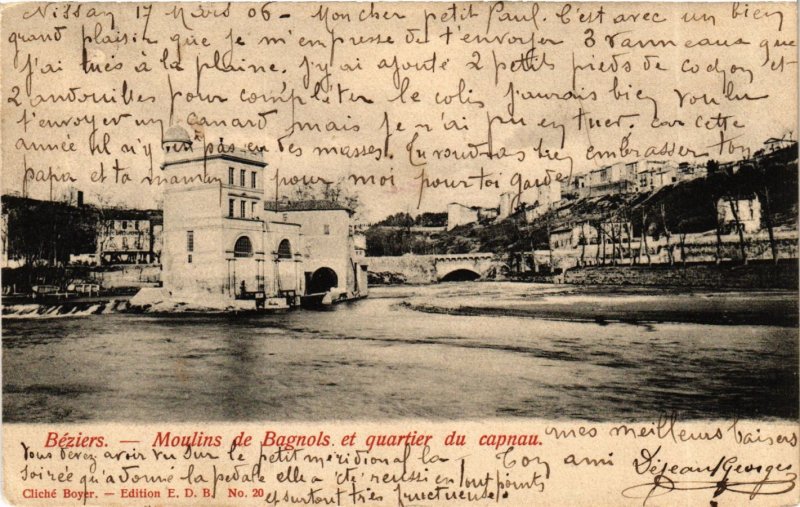 Nissan 17 Mars 06 - Mon cher petit Paul. C'est avec un bien
grand plaisir que je m'empresse de t'envoyer 3 vanneaux que
j'ai tués à la plaine. j'y ai ajouté 2 petits pieds de cochon et
2 andouilles pour compléter le colis j'aurais bien voulu
t'envoyer un canard mais je n'ai pu en tuer. car cette
année il n'y a pas eu des masses. Tu voudras bien embrasser ton
papa et ta maman pour moi pour toi garde
mes meilleurs baisers
Ton ami Déjean Georges
Béziers. — Moulins de Bagnols et quartier du capnau.
Vous devez avoir vu sur le petit méridional la
soirée qu'a donné la pedale elle a été reussi en tout points
et surtout très fructueuse.
Cliché Boyer. — Edition E. D. B. No. 20